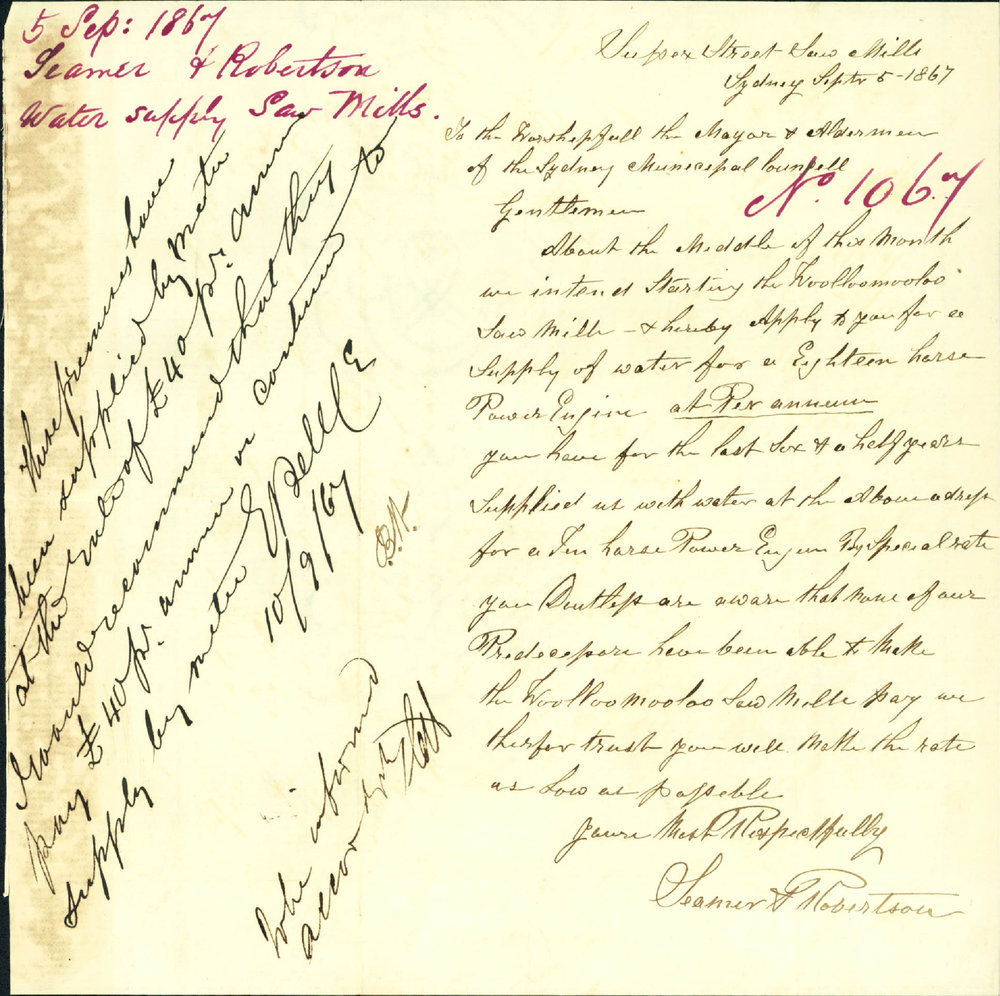 5 Sep: 1867
Seamer & Robertson
Water supply Saw Mills.
These premises have
been supplied by meter
at the rate of £40 pr. annum
I would recommend that they
pay £40 pr. annum or continue to
supply by meter E Bell C E
10/9/67
To be informed
accordgly
Sussex Street Saw Mills
Sydney Septr 5-1867
To the Worshepfull the Mayor & Aldermen
of the Sydney Municepal Counsell
No. 1067
Gentlemen
About the Middle of this Month
we intend Starting the Woolloomooloo
Saw Mills - & hereby Apply to you for a
Supply of water for a Eighteen horse
Power Engine at Per annum
you have for the last Six & a half years
Supplied us with water at the Above adress
for a Ten horse Power Engine By Special rate
you Doutless are aware that none of our
Predecessors have been able to Make
the Woolloomooloo Saw Mills pay we
therfor trust you will Make the rate
as Low as posseble
yours Most Respectfully
Seamer & Robertson